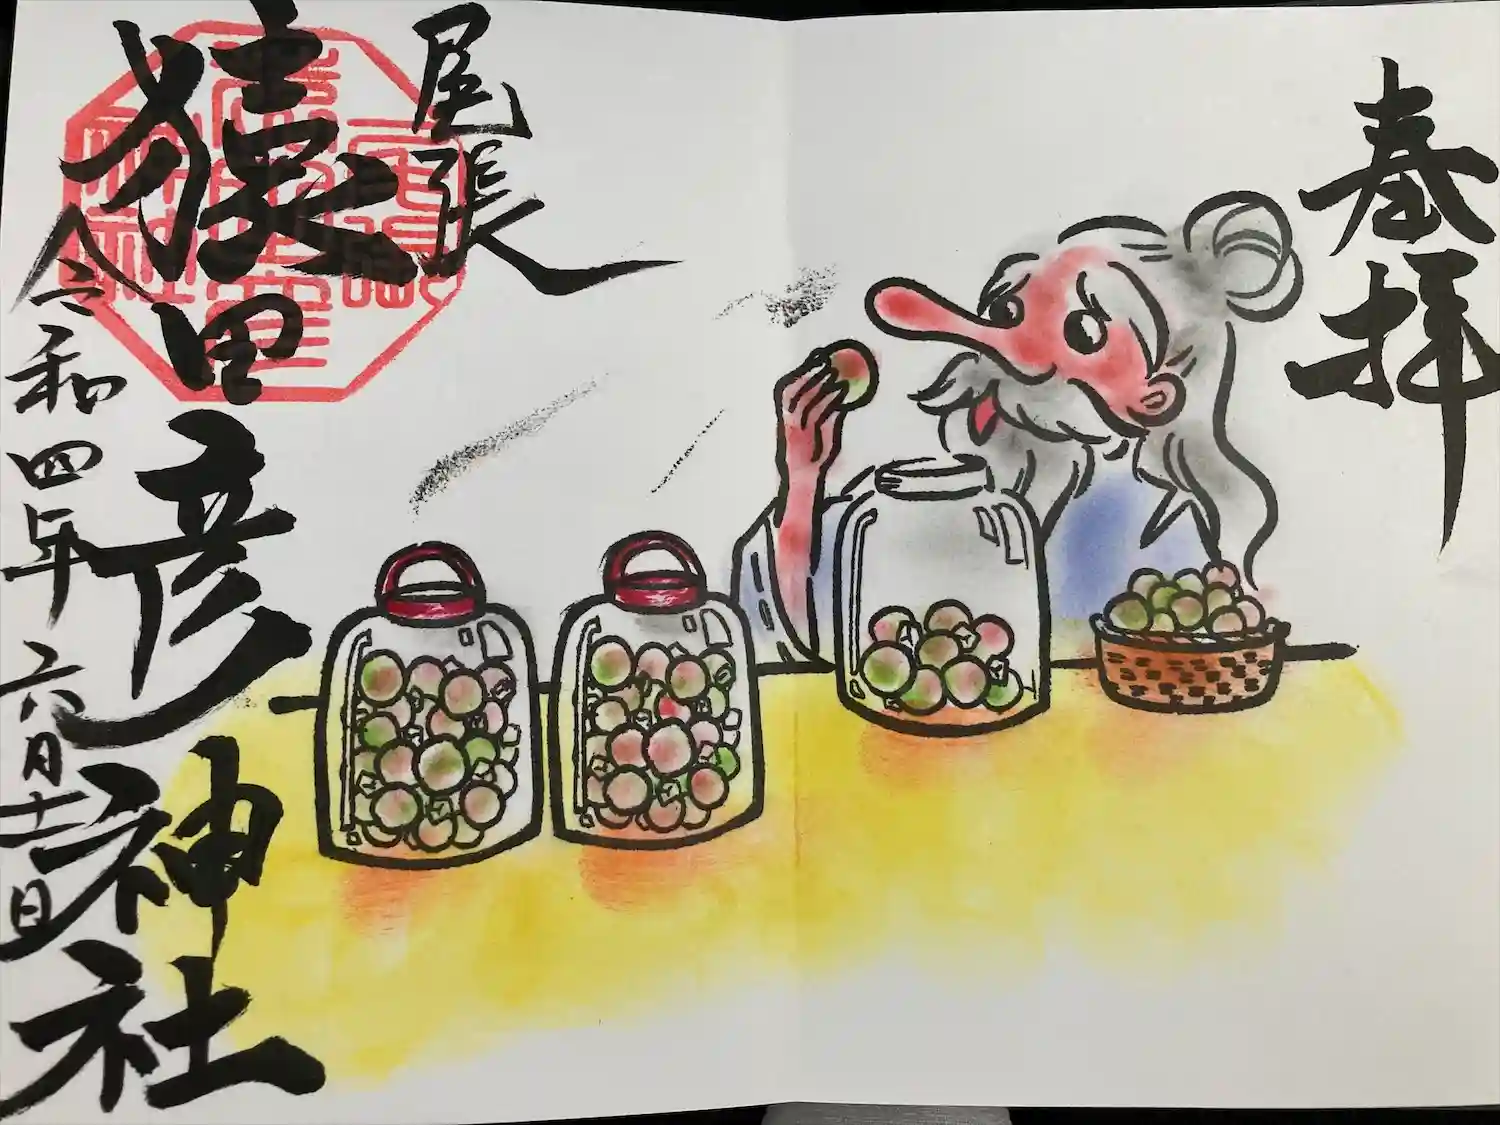 奉拝
尾張
猿田彦神社
令和四年六月十二日